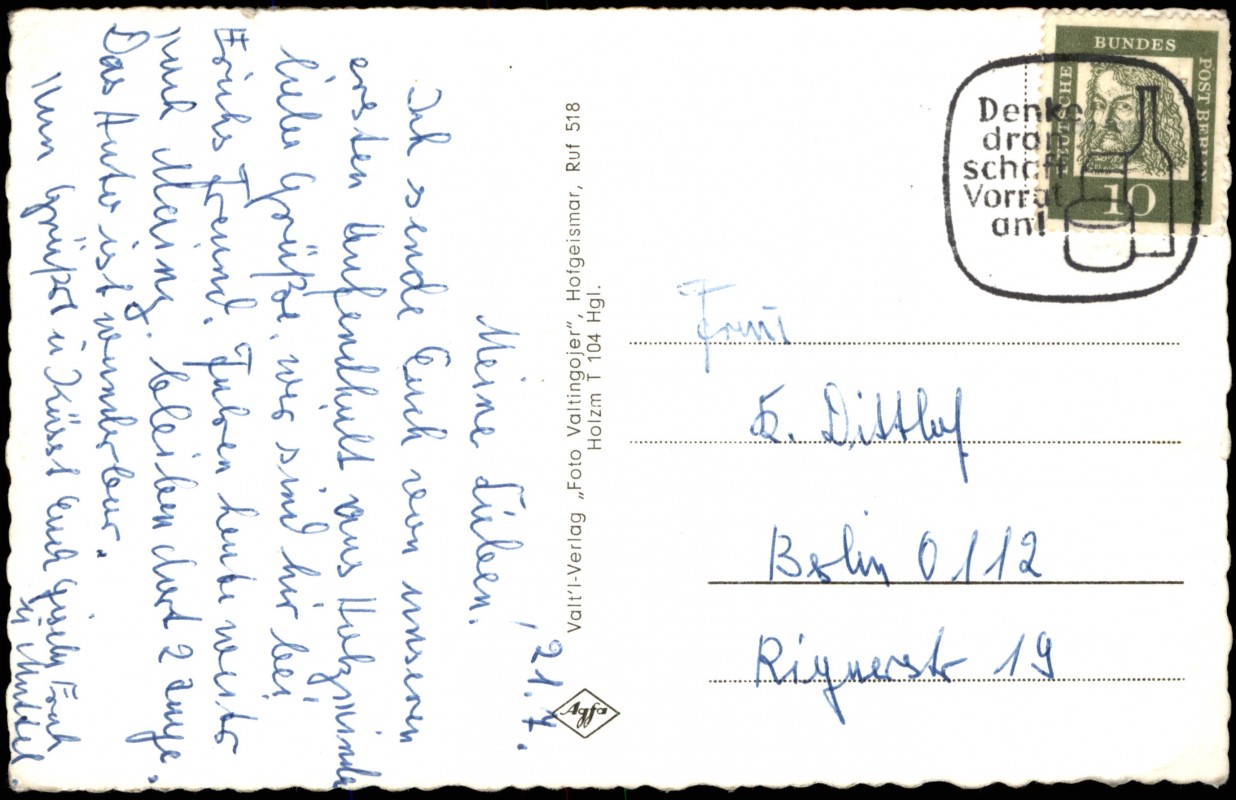 21.7.
Meine Lieben!
Ich sende Euch von unseren
ersten Aufendhalt aus Holzminden
liebe Grüße, wir sind hir bei
Erichs Freund. Fahren heute weiter
nach Mainz, bleiben dort 2 Tage.
Das Auto ist wunderbar.
Nun Grüßt u Küsst Euch Erich
u Muttel.
Valt'l-Verlag „Foto Valtingojer", Hofgeismar, Ruf 518
Holzm T 104 Hgl.
Agfa
DEUTSCHE BUNDESPOST BERLIN
10
Denke
dran
schaff
Vorrat
an!
Frau
E. Dittlof
Berlin O 112
Rignerstr 19